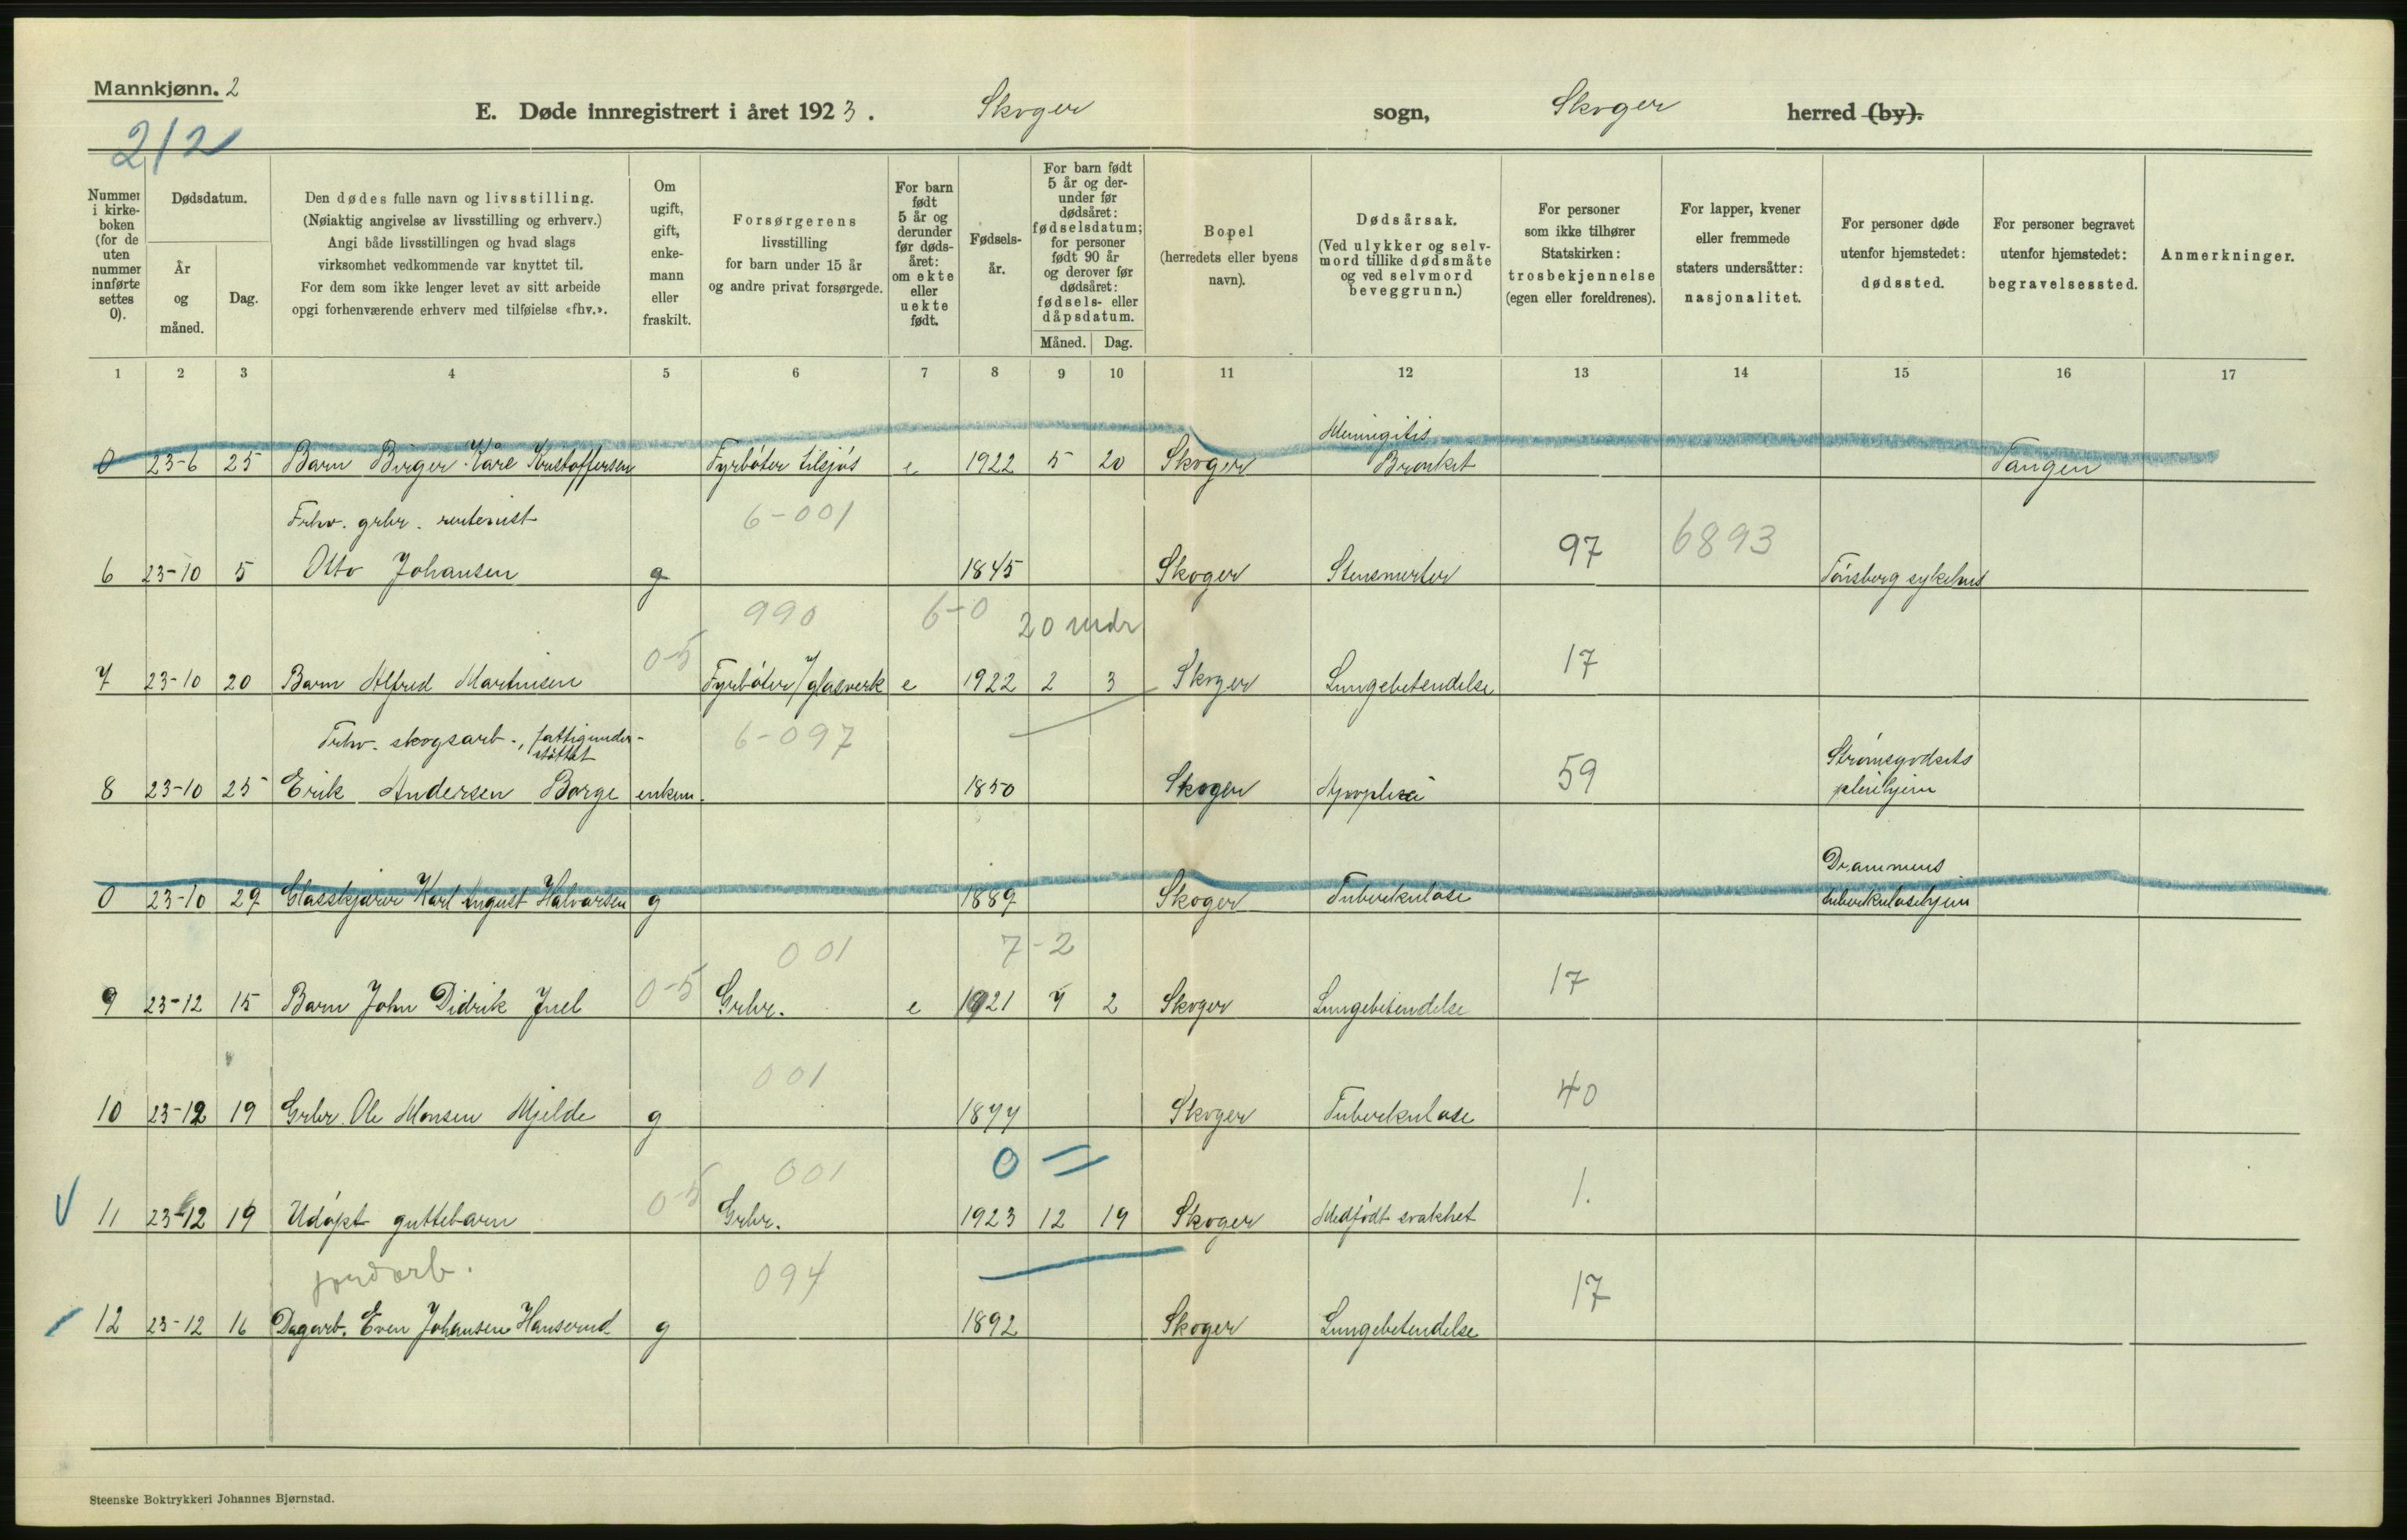 Mannkjønn. 2
E. Døde innregistrert i året 1923. Skoger sogn, Skoger herred (by).
212
Nummer i kirkeboken (for de uten nummer innførte settes 0).
Dødsdatum.
År og måned.
Dag.
Den dødes fulle navn og livsstilling.
(Nøiaktig angivelse av livsstilling og erhverv.)
Angi både livsstillingen og hvad slags
virksomhet vedkommende var knyttet til.
For dem som ikke lenger levet av sitt arbeide
opgi forhenværende erhverv med tilføielse «fhv.».
Om ugift, gift, enkemann eller fraskilt.
Forsørgerens
livsstilling
for barn under 15 år
og andre privat forsørgede.
For barn født 5 år og derunder før dødsåret: om ekte eller uekte født.
Fødselsår.
For barn født 5 år og derunder før dødsåret: fødselsdatum; for personer født 90 år og derover før dødsåret: fødsels- eller dåpsdatum.
Måned. Dag.
Bopel
(herredets eller byens
navn).
Dødsårsak.
(Ved ulykker og selvmord tillike dødsmåte og ved selvmord beveggrunn.)
For personer
som ikke tilhører
Statskirken:
trosbekjennelse
(egen eller foreldrenes).
For lapper, kvener
eller fremmede
staters undersåtter:
nasjonalitet.
For personer døde
utenfor hjemstedet:
dødssted.
For personer begravet
utenfor hjemstedet:
begravelsessted.
Anmerkninger.
1 2 3 4 5 6 7 8 9 10 11 12 13 14 15 16 17
Meningitis
0 23-6 25 Barn Birger Kåre Kristoffersen Fyrbøter tilsjøs e 1922 5 20 Skoger Bronkit Tangen
Frhv. grbr. rentenist 6-001
6 23-10 5 Otto Johansen g 1845 Skoger Stensmerter 97 6893 Tönsberg sykehus
990 6-0 20 mdr
7 23-10 20 Barn Alfred Martinsen 0-5 Fyrbøter/glasverk e 1922 2 3 Skoger Lungebetendelse 17
Frhv. skogsarb., fattigunder- 6-097
støttet Strømsgodsets
8 23-10 25 Erik Andersen Borge enkem. 1850 Skoger Apoplexi 59 pleiehjem
Drammens
0 23-10 29 Glasskjærer Karl August Halvorsen g 1889 Skoger Tuberkulose tuberkulosehjem
001 7-2
9 23-12 15 Barn John Didrik Juel 0-5 Grbr. e 1921 4 2 Skoger Lungebetendelse 17
001
10 23-12 19 Grbr. Ole Monsen Mjelde g 1877 Skoger Tuberkulose 40
001 0 =
11 23-12 19 Udøpt guttebarn 0-5 Grbr. 1923 12 19 Skoger Medfødt svakhet 1.
jordarb. 094
12 23-12 16 Dagarb. Even Johansen Hanserud g 1892 Skoger Lungebetendelse 17
Steenske Boktrykkeri Johannes Bjørnstad.